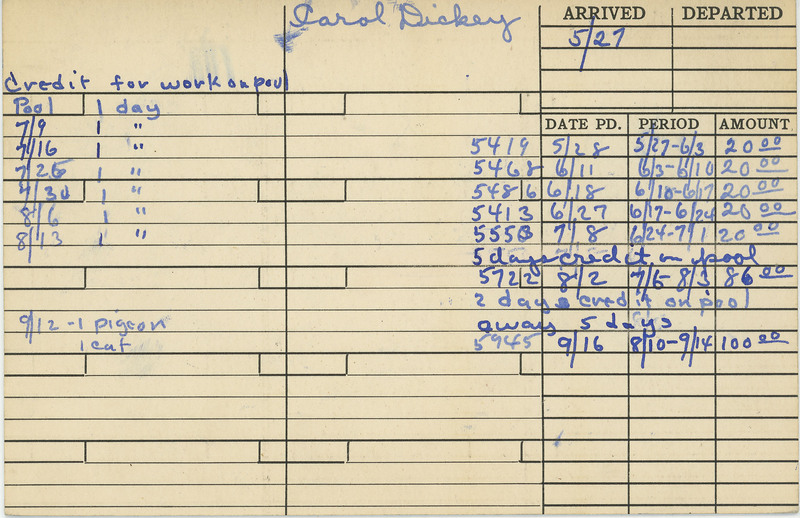 Carol Dickey
ARRIVED DEPARTED
5/27
Credit for work on pool
Pool 1 day
DATE PD. PERIOD AMOUNT
7/9 1 "
7/16 1 " 5419 5/28 5/27-6/3 20 00
7/26 1 " 5468 6/11 6/3-6/10 20 00
7/30 1 " 5486 6/18 6/10-6/17 20 00
8/6 1 " 5413 6/27 6/17-6/24 20 00
8/13 1 " 5553 7/8 6/24-7/1 20 00
5 days credit on pool
5722 8/2 7/6-8/3 86 00
2 days credit on pool
9/12 - 1 pigeon
away 5 days
1 cat
5945 9/16 8/10-9/14 100 00